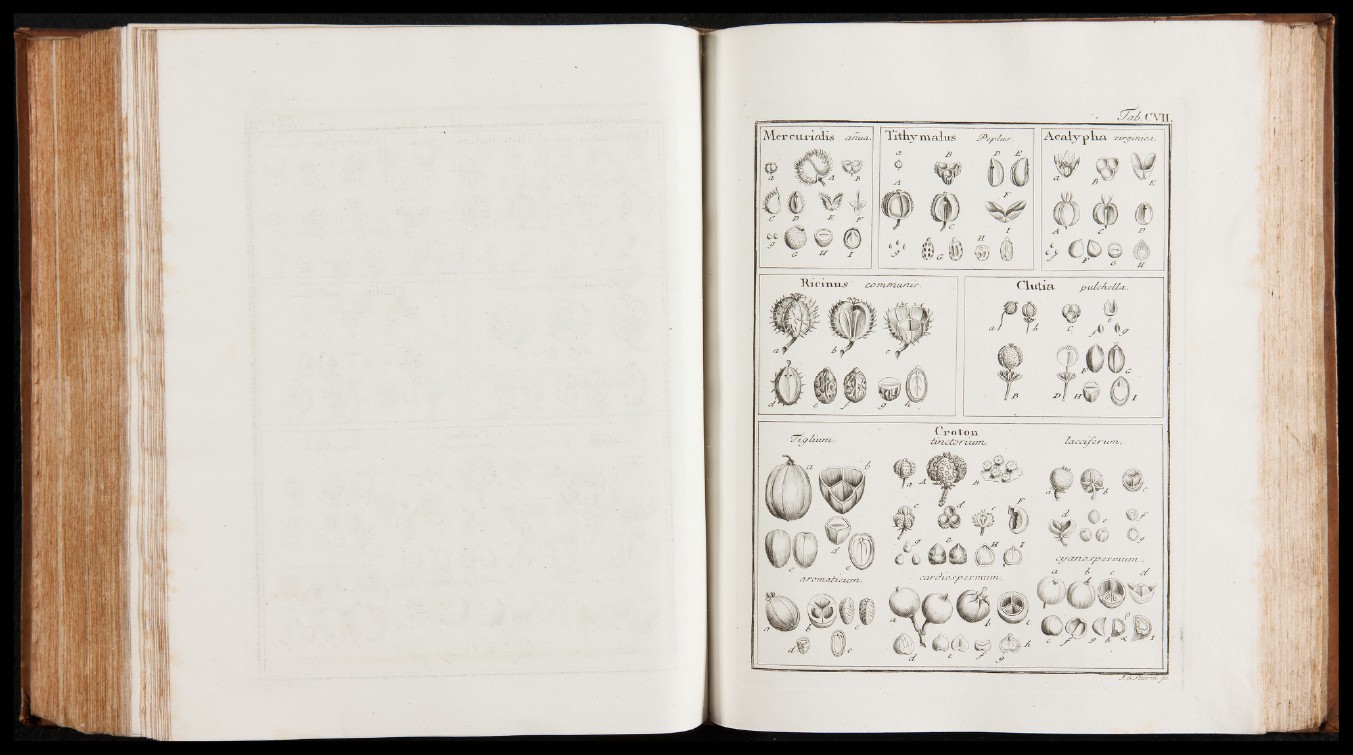 Tab. CVII.
Mercurialis anua.
a A B
C D E F
g G H I
Tithymalus Peplus.
a B D E
A F
C I
g G H
Acalypha virginica.
a B E
A C D
f F G H
Ricinus communis.
a b c
d e f g h
Clutia pulchella.
a b c e
f g
B D F G H I
Croton
Tiglium.
a b
c d e
tinctorium.
a A B
c d e F
g G H I
lacciferum.
a b c
d e f
g
aromaticum.
a b c
d e
cardiospermum.
a b c
d e f g h
cyanospermum.
a b c d
e f g h i
J. G. Sturm sc.